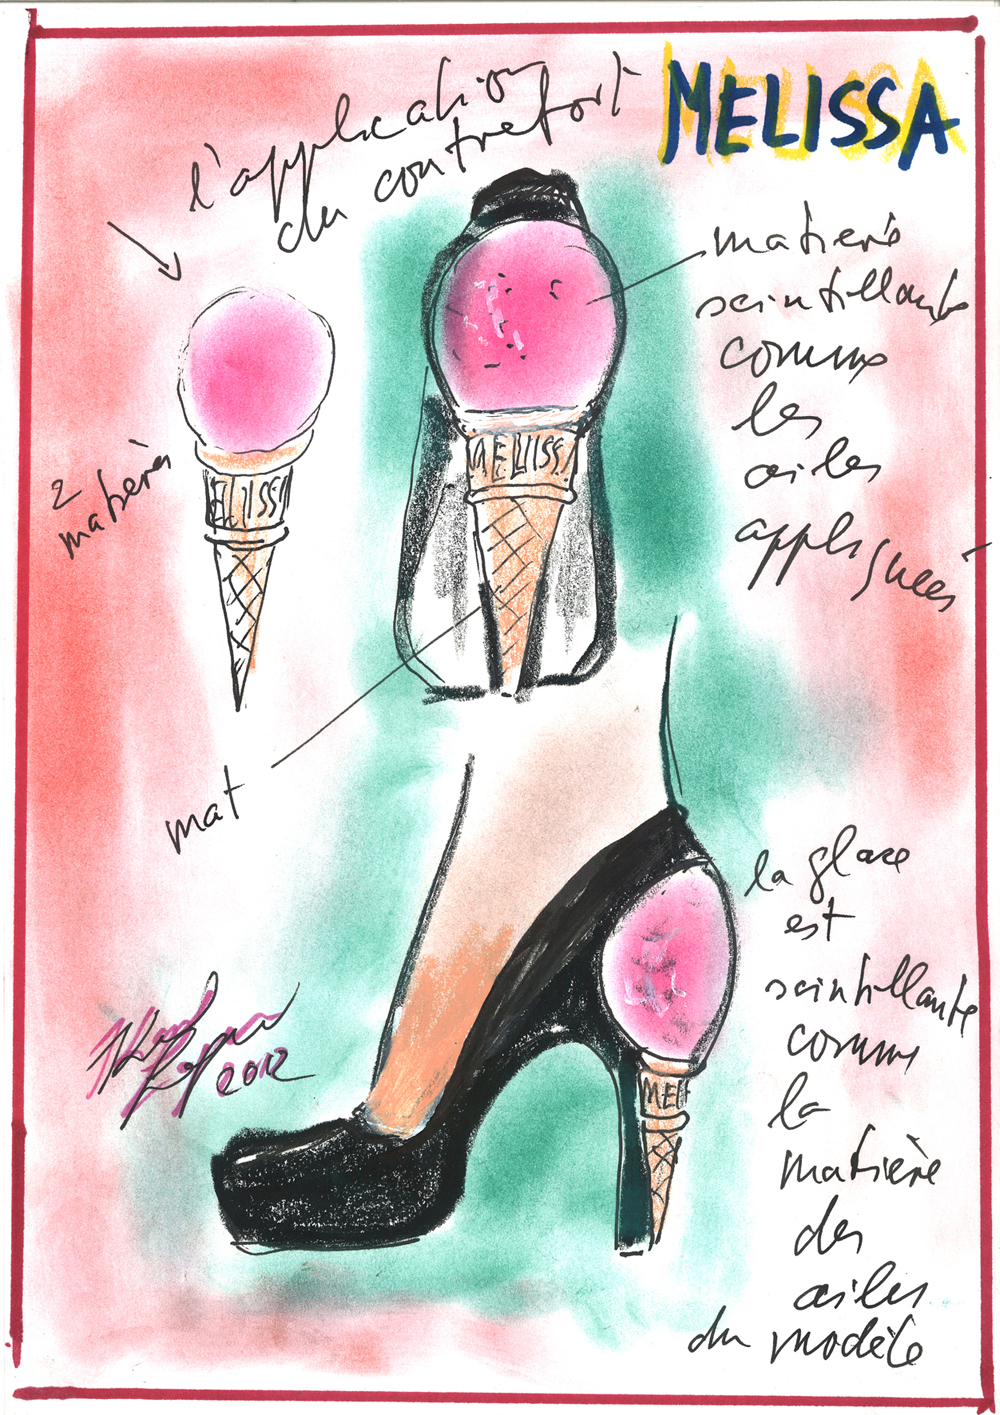 MELISSA
l'application
du contrefort
matière
scintillante
comme
les
ailes
appliquées
2
matières
ELISS
MELISS
mat
la glace
est
scintillante
comme
la
matière
des
ailes
du modèle
MEL
2012